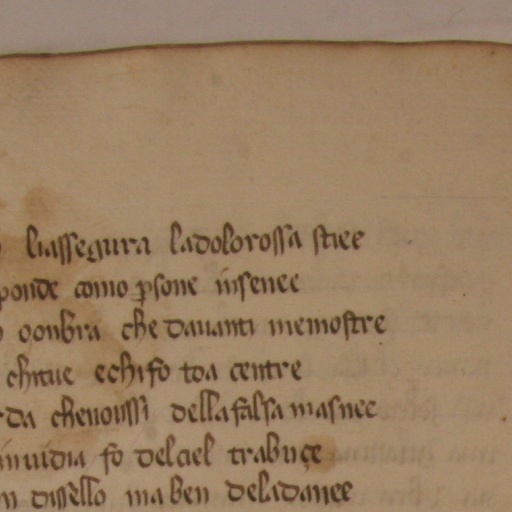 liassegura ladolorossa stiee
ponde como ꝑsone insenee
oonbra che dauanti memostre
chitue echifo toa centre
da chenoussi dellafalsa masnee
inuidia fo delcel trabuçe
dissello ma ben deladanee